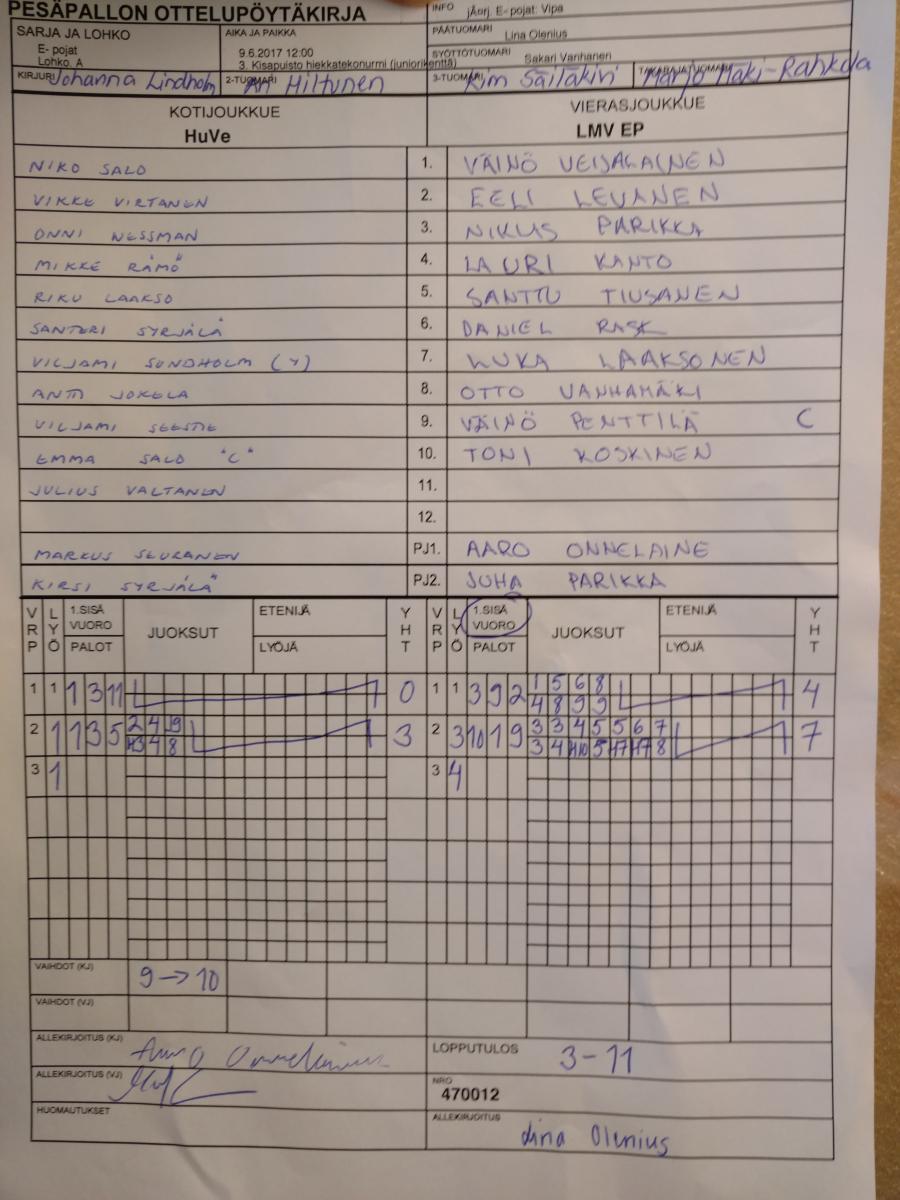 PESÄPALLON OTTELUPÖYTÄKIRJA
INFO jÄorj. E- pojat: Vipa
SARJA JA LOHKO
E- pojat
Lohko. A
AIKA JA PAIKKA
9.6.2017 12:00
3. Kisapuisto hiekkatekonurmi (juniorikenttä)
PÄÄTUOMARI Lina Olenius
SYÖTTÖTUOMARI Sakari Vanhanen
KIRJURI Johanna Lindholm
2-TUOMARI Ari Hiltunen
3-TUOMARI Kim Säiläkivi
TAKARAJATUOMARI Marjo Mäki-Rahkola
KOTIJOUKKUE VIERASJOUKKUE
HuVe LMV EP
NIKO SALO 1. VÄINÖ VEIJALAINEN
VIKKE VIRTANEN 2. EELI LEVANEN
ONNI NESSMAN 3. NIKUS PARIKKA
MIKKE RÄMÖ 4. LAURI KANTO
RIKU LAAKSO 5. SANTTU TIUSANEN
SANTERI SYRJÄLÄ 6. DANIEL RASK
VILJAMI SUNDHOLM (Y) 7. LUKA LAAKSONEN
ANTTI JOKELA 8. OTTO VANHAMÄKI
VILJAMI SEESTIE 9. VÄINÖ PENTTILÄ C
EMMA SALO "C" 10. TONI KOSKINEN
JULIUS VALTANEN 11.
12.
MARKUS SEURANEN PJ1. AARO ONNELAINE
KIRSI SYRJÄLÄ PJ2. JUHA PARIKKA
VRP LYÖ 1.SISÄ VUORO PALOT JUOKSUT ETENIJÄ LYÖJÄ YHT VRP LYÖ 1.SISÄ VUORO PALOT JUOKSUT ETENIJÄ LYÖJÄ YHT
1 1 1 3 11 0 1 1 3 9 2 1 5 6 8 4
4 8 9 9
2 1 1 3 5 2 4 3 2 3 10 1 9 3 3 4 5 5 6 7 7
4 8 3 4 5 8
3 1 3 4
VAIHDOT (KJ) 9 → 10
VAIHDOT (VJ)
ALLEKIRJOITUS (KJ)
LOPPUTULOS 3-11
ALLEKIRJOITUS (VJ)
NRO
470012
HUOMAUTUKSET
ALLEKIRJOITUS
Lina Olenius